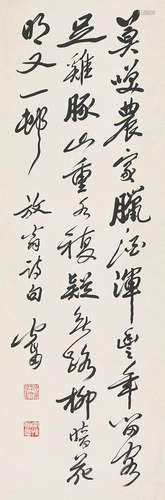 莫笑農家臘酒渾豐年留客
足雞豚山重水複疑無路柳暗花
明又一邨
放翁詩句